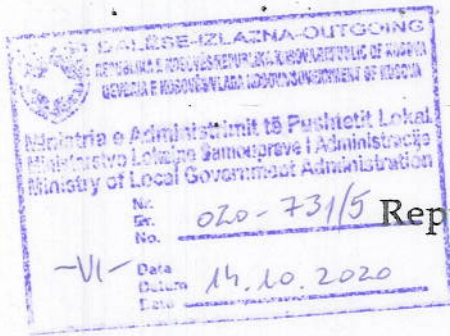 DALËSE-IZLAZNA-OUTGOING
REPUBLIKA E KOSOVËS/REPUBLIKA KOSOVA/REPUBLIC OF KOSOVA
QEVERIA E KOSOVËS/VLADA KOSOVA/GOVERNMENT OF KOSOVA
Ministria e Administrimit të Pushtetit Lokal
Ministarstvo Lokalne Samouprave i Administracije
Ministry of Local Government Administration
Nr.
Br.
No. 020-731/5
Rep
-VI-
Data
Datum
Date 14.10.2020